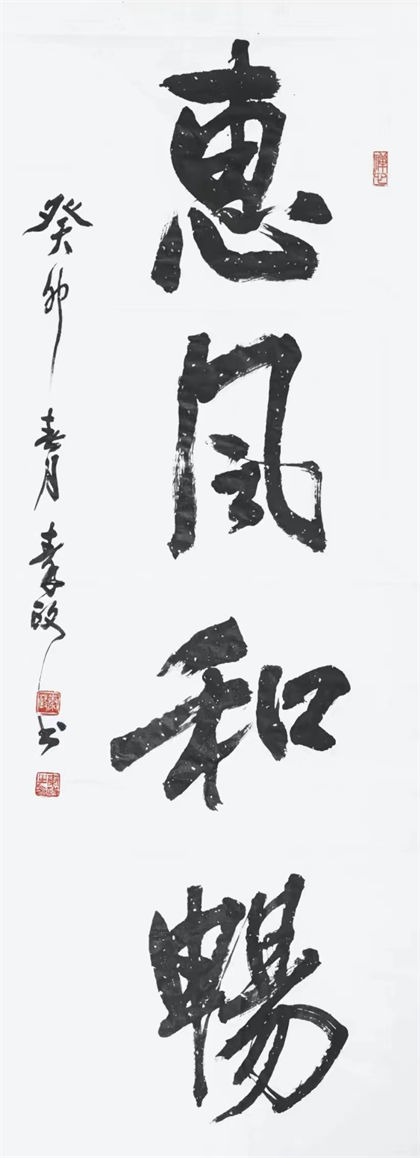 惠風和暢
癸卯春月秦政书